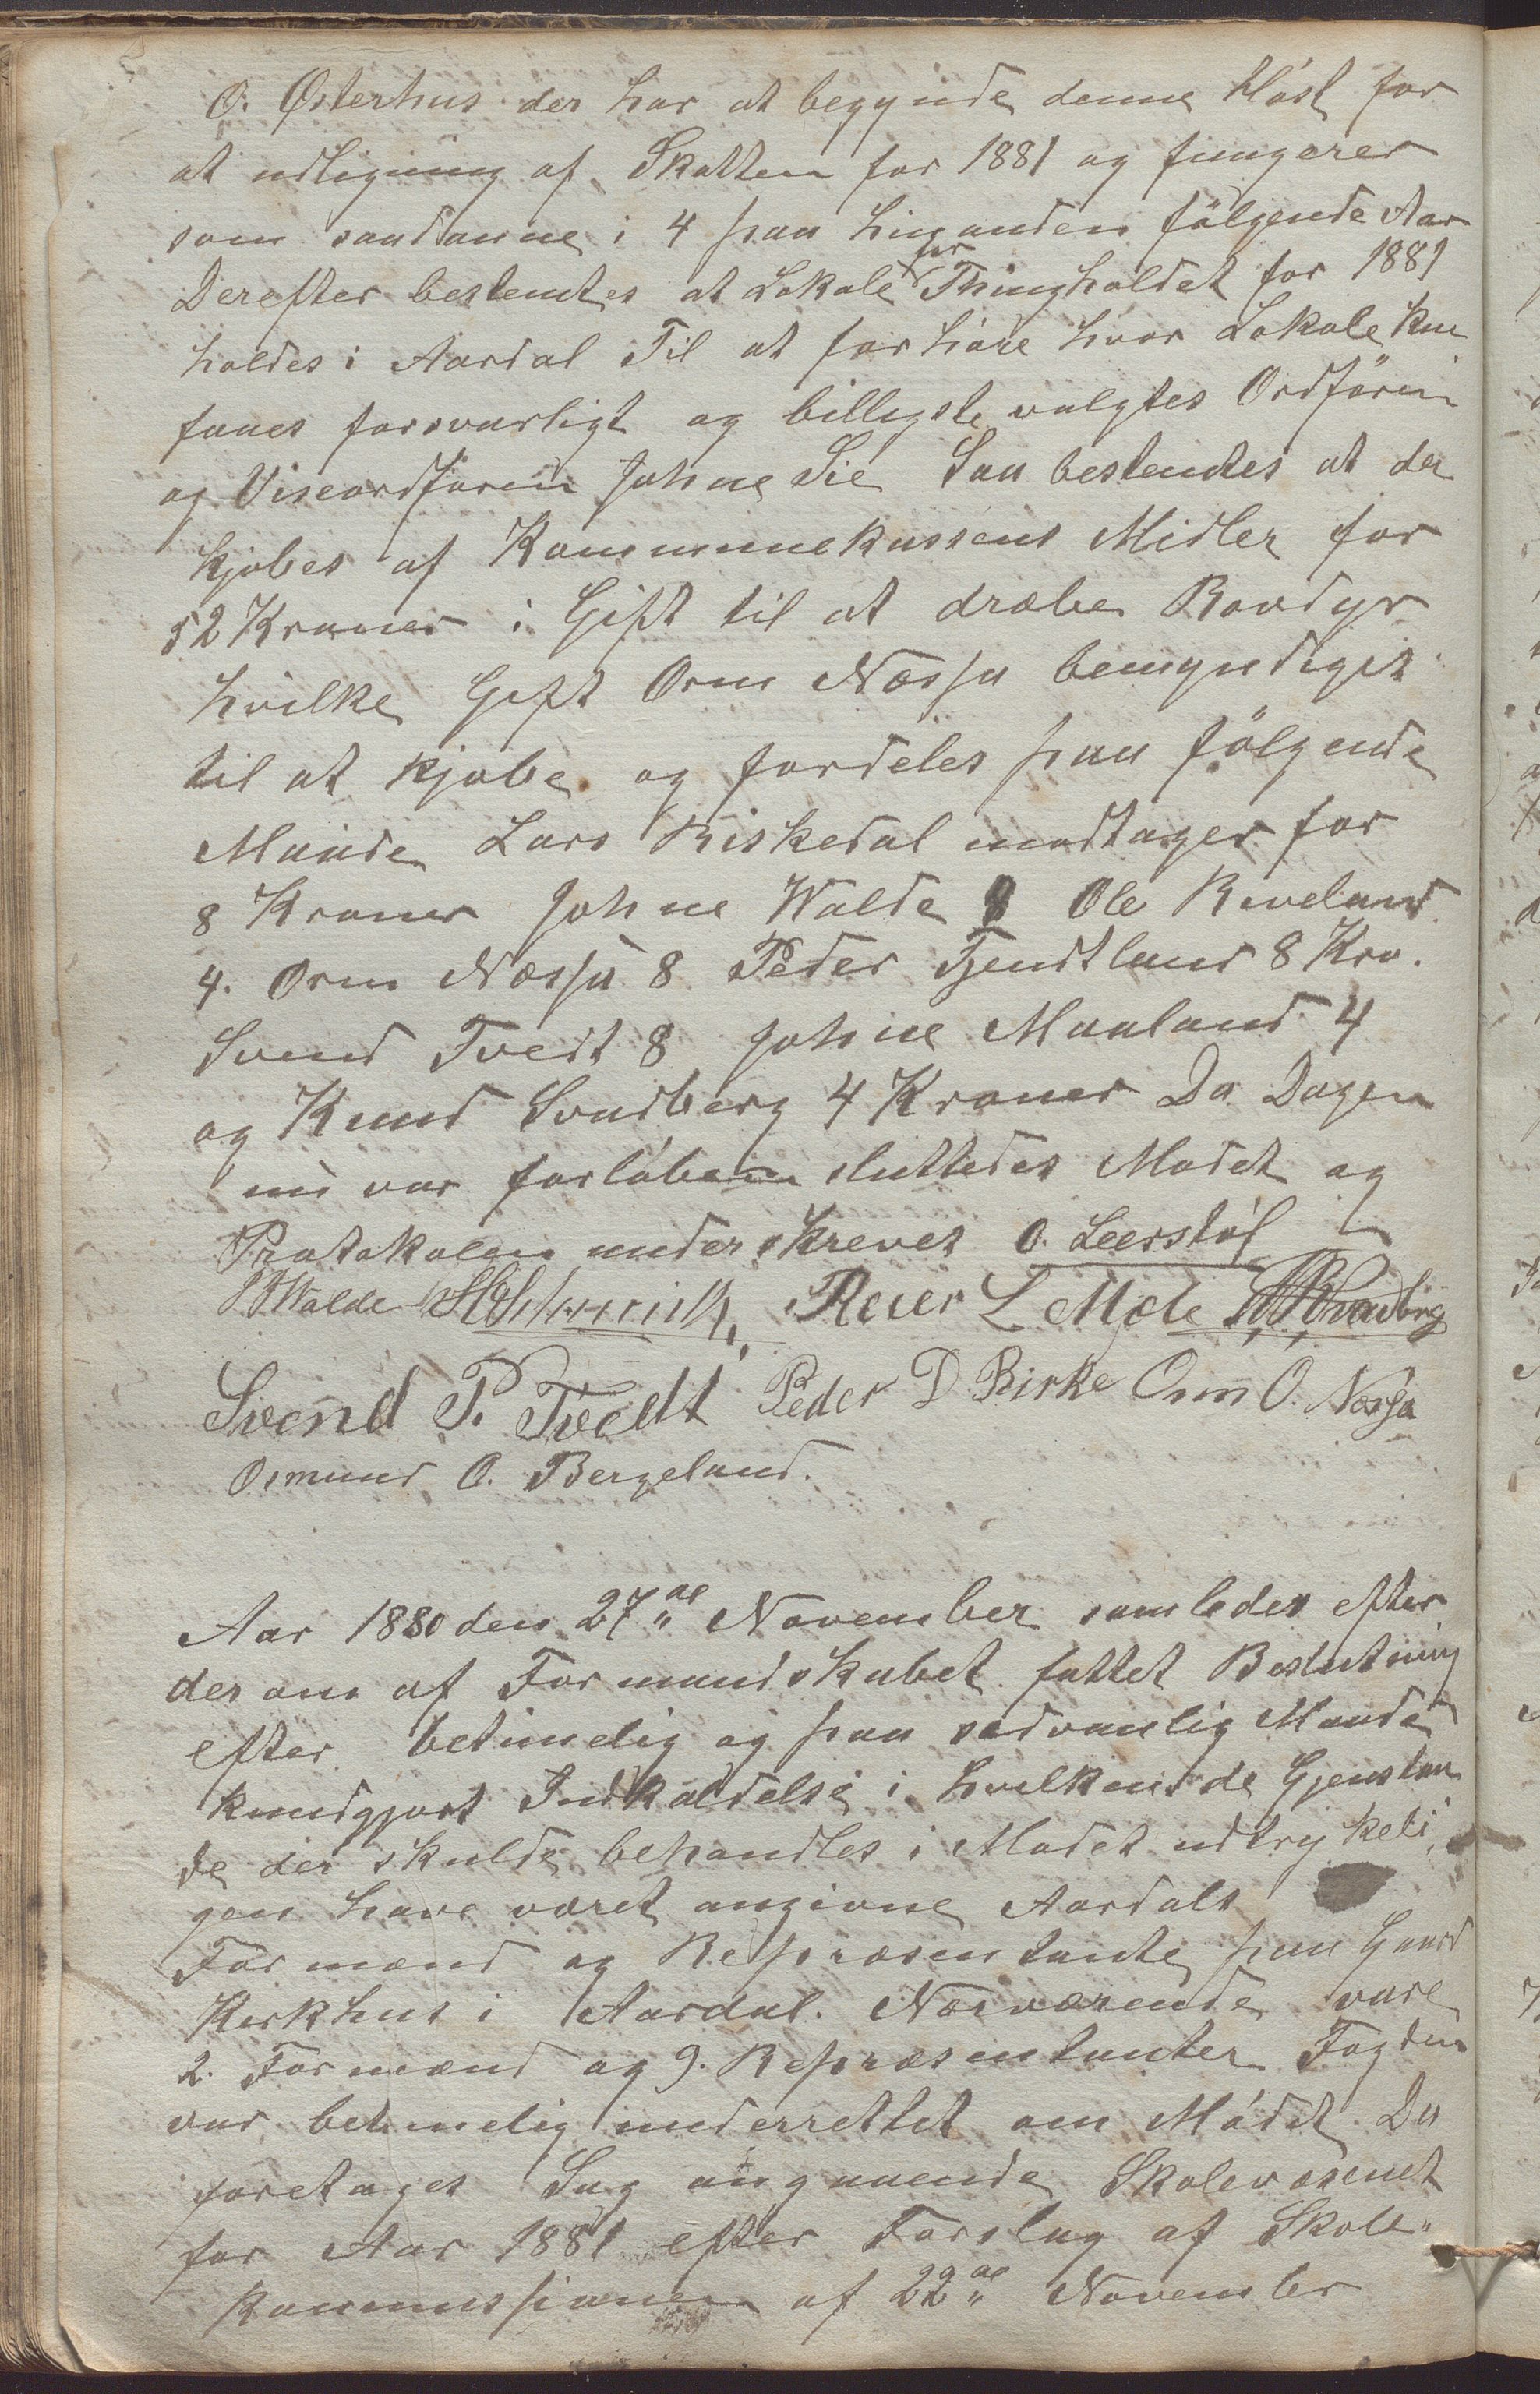 O. Østerhus der har at begynde denne Høst for
at udligning af Skatten for 1881 og fungerer
som saadanne i 4 paa hinanden følgende Aar
Derefter bestemtes at Lokale for Thingholdet for 1881
holdes i Aardal Til at forhøre hvor Lokale kan
faaes forsvarligt og billigste valgtes Ordføren
og Viseordføren Johne Sie Saa bestemtes at der
kjøbes af Kommunekassens Midler for
52 Kroner i Gift til at dræbe Rovdyr
hvilke Gift Orm Næssa bemyndiget
til at kjøbe og fordeles paa følgende
Mænde Lars Riskedal modtager for
8 Kroner Johne Walde 8 Ole Riveland
4. Orm Næssa 8 Peder Tjentland 8 Kro.
Svend Tvedt 8 Johne Maaland 4
og Knud Svadberg 4 Kroner Da Dagen
nu var forløben sluttedes Mødet og
Protokolen underskrevet O. Leerstøl
Walde Reier L Mæle
Svend P. Tvedt Peder D Birke Orm O. Næsja
Osmund O. Bergeland.
Aar 1880 den 27de November samledes efter
derom af Formandskabet fattet Beslutning
efter betimelig og paa sedvanlig Maade
kundgjort Indkaldelse i hvilken de Gjenstan
de der skulde behandles i Mødet udtrykeli
gen have været angivne Aardals
Formænd og Repræsentante paa Gaard
Kirkhus i Aardal. Nærværende vare
2. Formænd og 9. Repræsentanter Fogden
var betimelig underrettet om Mødet Da
foretages Sag angaaende Skolevæsenet
for Aar 1881 efter Forslag af Skole-
kommissionen af 22de November